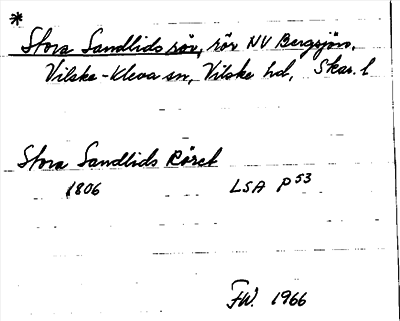 *
Stora Sandlids rör, rör NV Bergsjön,
Vilske-Kleva sn, Vilske hd, Skar. l
Stora Sandlids Röret
1806 LSA P 53
FW. 1966